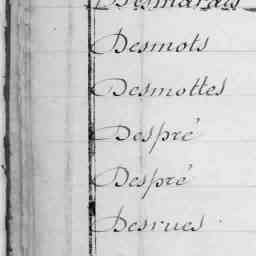 Desmarais
Desmots
Desmottes
Despré
Despré
Desrues